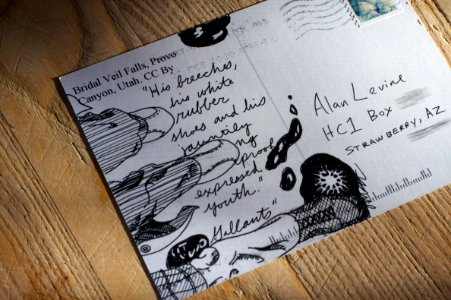 Bridal Veil Falls, Provo
Canyon, Utah. CC By
"His breeches,
his white
rubber
shoes and his
jauntily
proof
expressed
youth."
Gallants"
Alan Levine
HC1 Box
STRAWBERRY, AZ